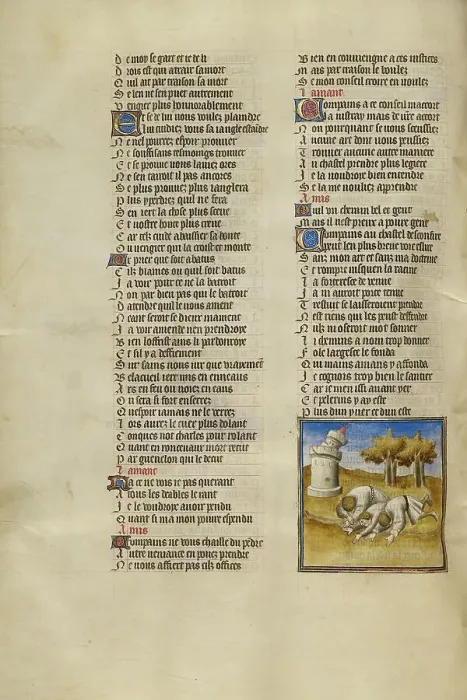 De moy se gart et je de li
Drois est qui atrait sa mort
Quil ait par traison sa mort
Se len ne sen puet autrement
Vengier plus honnorablement
Et se de lui vous voulez plaindre
Ne nel pourrez espoir prouver
Ne souffisans tesmoings trouver
Et se prouve vous lauiez ores
Ne sen tairoit il pas ancores
Se plus prouvez plus ianglera
Plus y perdrez quil ne fera
Sen iert la chose plus sceue
Et vostre honte plus creue
Car telz cuide abaissier sa honte
Ou vengier qui la croist et monte
De prier que soit abatus
Cilz blasmes ou quil soit batus
Ja voir pour ce ne la batroit
Non par dieu pas qui le batroit
Datendre quil le nous ament
Neant seroit se dieux mament
Ja voir amende nen prendroye
Bien loffrist ains li pardonroye
Et sil y a deffiement
Sur sains nous iur que vraiement
Belacueil iert mis en enneaus
Ars en feu ou noiez en eaus
Ou sera si fort enserrez
Quespoir iamais ne le verrez
Lors aurez le cuer plus dolant
Conques not charles pour rolant
Quant en roncevaux mort recut
Par guenelon qui le decut
Lamant
Ha ce ne vois ie pas querant
A tous les deables le rant
Je le voudroye avoir pendu
Quant si ma mon poivre espendu
Amis
Compains ne vous chaille du pendre
Autre veniance en pouez prendre
Ne vous affiert pas cilz offices
Bien en couviengne a ces iustices
Mais par traison le boulez
Se mon conseil croire en voulez
Lamant
Compains a ce conseil macort
Ja nistray mais de cest acort
Non pourquant se vous sceussiez
Aucune art dont vous peussiez
Trouver aucune autre maniere
Du chastel prendre plus legiere
Je la voudroye bien entendre
Se la me vouliez aprendre
Amis
Ouil un chemin bel et gent
Mais il nest preux a povre gent
Compains au chastel desconfire
Puet len plus brieve voie eslire
Sans mon art et sans ma doctrine
Et rompre iusques en la racine
La forteresse de venue
Ja ni auroit porte tenue
Trestuit se laisseroient prendre
Nest riens qui les peust deffendre
Nulz ni oseroit mot sonner
Li chemins a nom trop donner
Fole largesse le fonda
Qui mains amans y affonda
Je cognois trop bien le santier
Car ie men issi avant yer
Et pelerins y ay este
Plus dun yver et dun este